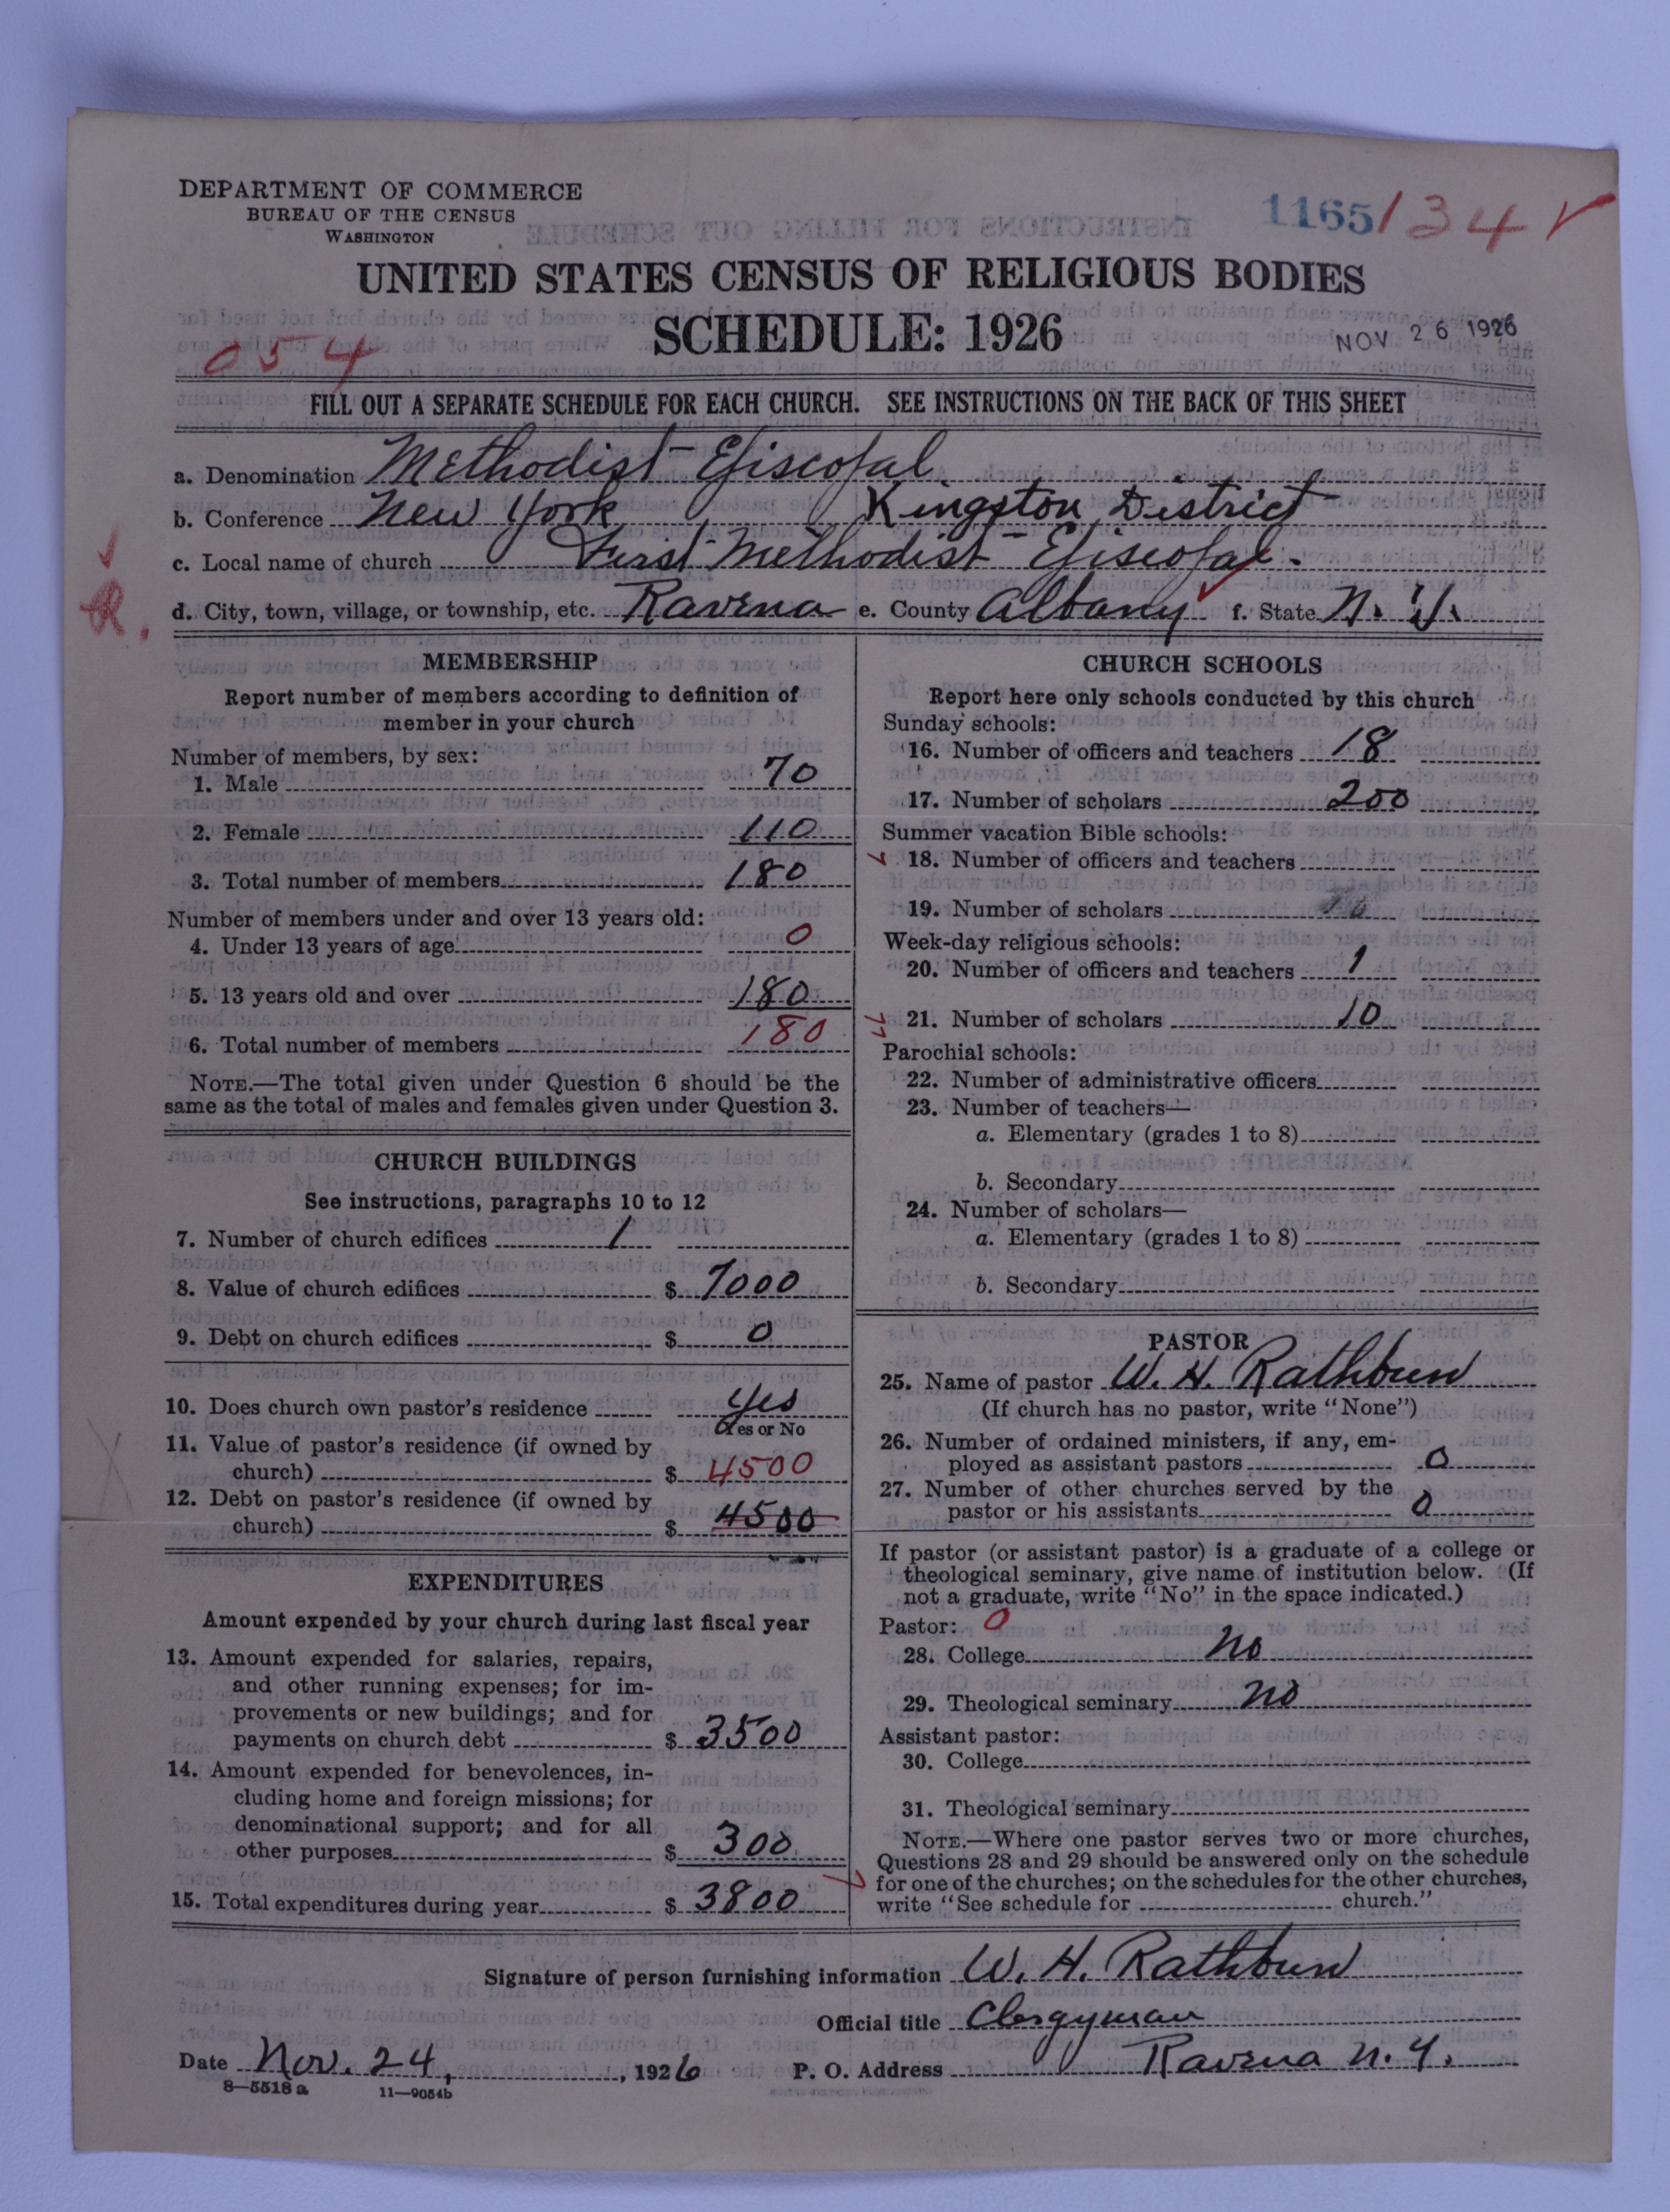 DEPARTMENT OF COMMERCE
BUREAU OF THE CENSUS
WASHINGTON
1165/34
UNITED STATES CENSUS OF RELIGIOUS BODIES
SCHEDULE: 1926
NOV 26 1926
054
FILL OUT A SEPARATE SCHEDULE FOR EACH CHURCH. SEE INSTRUCTIONS ON THE BACK OF THIS SHEET
a. Denomination Methodist Episcopal
b. Conference New York Kingston District
c. Local name of church First Methodist Episcopal.
R.
d. City, town, village, or township, etc. Ravena e. County Albany f. State N. Y.
MEMBERSHIP
Report number of members according to definition of
member in your church
Number of members, by sex:
1. Male 70
2. Female 110
3. Total number of members 180
Number of members under and over 13 years old:
4. Under 13 years of age 0
5. 13 years old and over 180
6. Total number of members 180
NOTE.—The total given under Question 6 should be the
same as the total of males and females given under Question 3.
CHURCH BUILDINGS
See instructions, paragraphs 10 to 12
7. Number of church edifices 1
8. Value of church edifices $ 7000
9. Debt on church edifices $ 0
10. Does church own pastor's residence Yes
Yes or No
11. Value of pastor's residence (if owned by
church) $ 4500
12. Debt on pastor's residence (if owned by
church) $ 4500
EXPENDITURES
Amount expended by your church during last fiscal year
13. Amount expended for salaries, repairs,
and other running expenses; for im-
provements or new buildings; and for
payments on church debt $ 3500
14. Amount expended for benevolences, in-
cluding home and foreign missions; for
denominational support; and for all
other purposes $ 300
15. Total expenditures during year $ 3800
CHURCH SCHOOLS
Report here only schools conducted by this church
Sunday schools:
16. Number of officers and teachers 18
17. Number of scholars 200
Summer vacation Bible schools:
18. Number of officers and teachers
19. Number of scholars
Week-day religious schools:
20. Number of officers and teachers 1
21. Number of scholars 10
Parochial schools:
22. Number of administrative officers
23. Number of teachers—
a. Elementary (grades 1 to 8)
b. Secondary
24. Number of scholars—
a. Elementary (grades 1 to 8)
b. Secondary
PASTOR
25. Name of pastor W. H. Rathbun
(If church has no pastor, write "None")
26. Number of ordained ministers, if any, em-
ployed as assistant pastors 0
27. Number of other churches served by the
pastor or his assistants 0
If pastor (or assistant pastor) is a graduate of a college or
theological seminary, give name of institution below. (If
not a graduate, write "No" in the space indicated.)
Pastor: 0
28. College no
29. Theological seminary no
Assistant pastor:
30. College
31. Theological seminary
NOTE.—Where one pastor serves two or more churches,
Questions 28 and 29 should be answered only on the schedule
for one of the churches; on the schedules for the other churches,
write "See schedule for church."
Signature of person furnishing information W. H. Rathbun
Official title Clergyman
Date Nov. 24, 1926 P. O. Address Ravena N. Y.
8—5518a 11—9054b